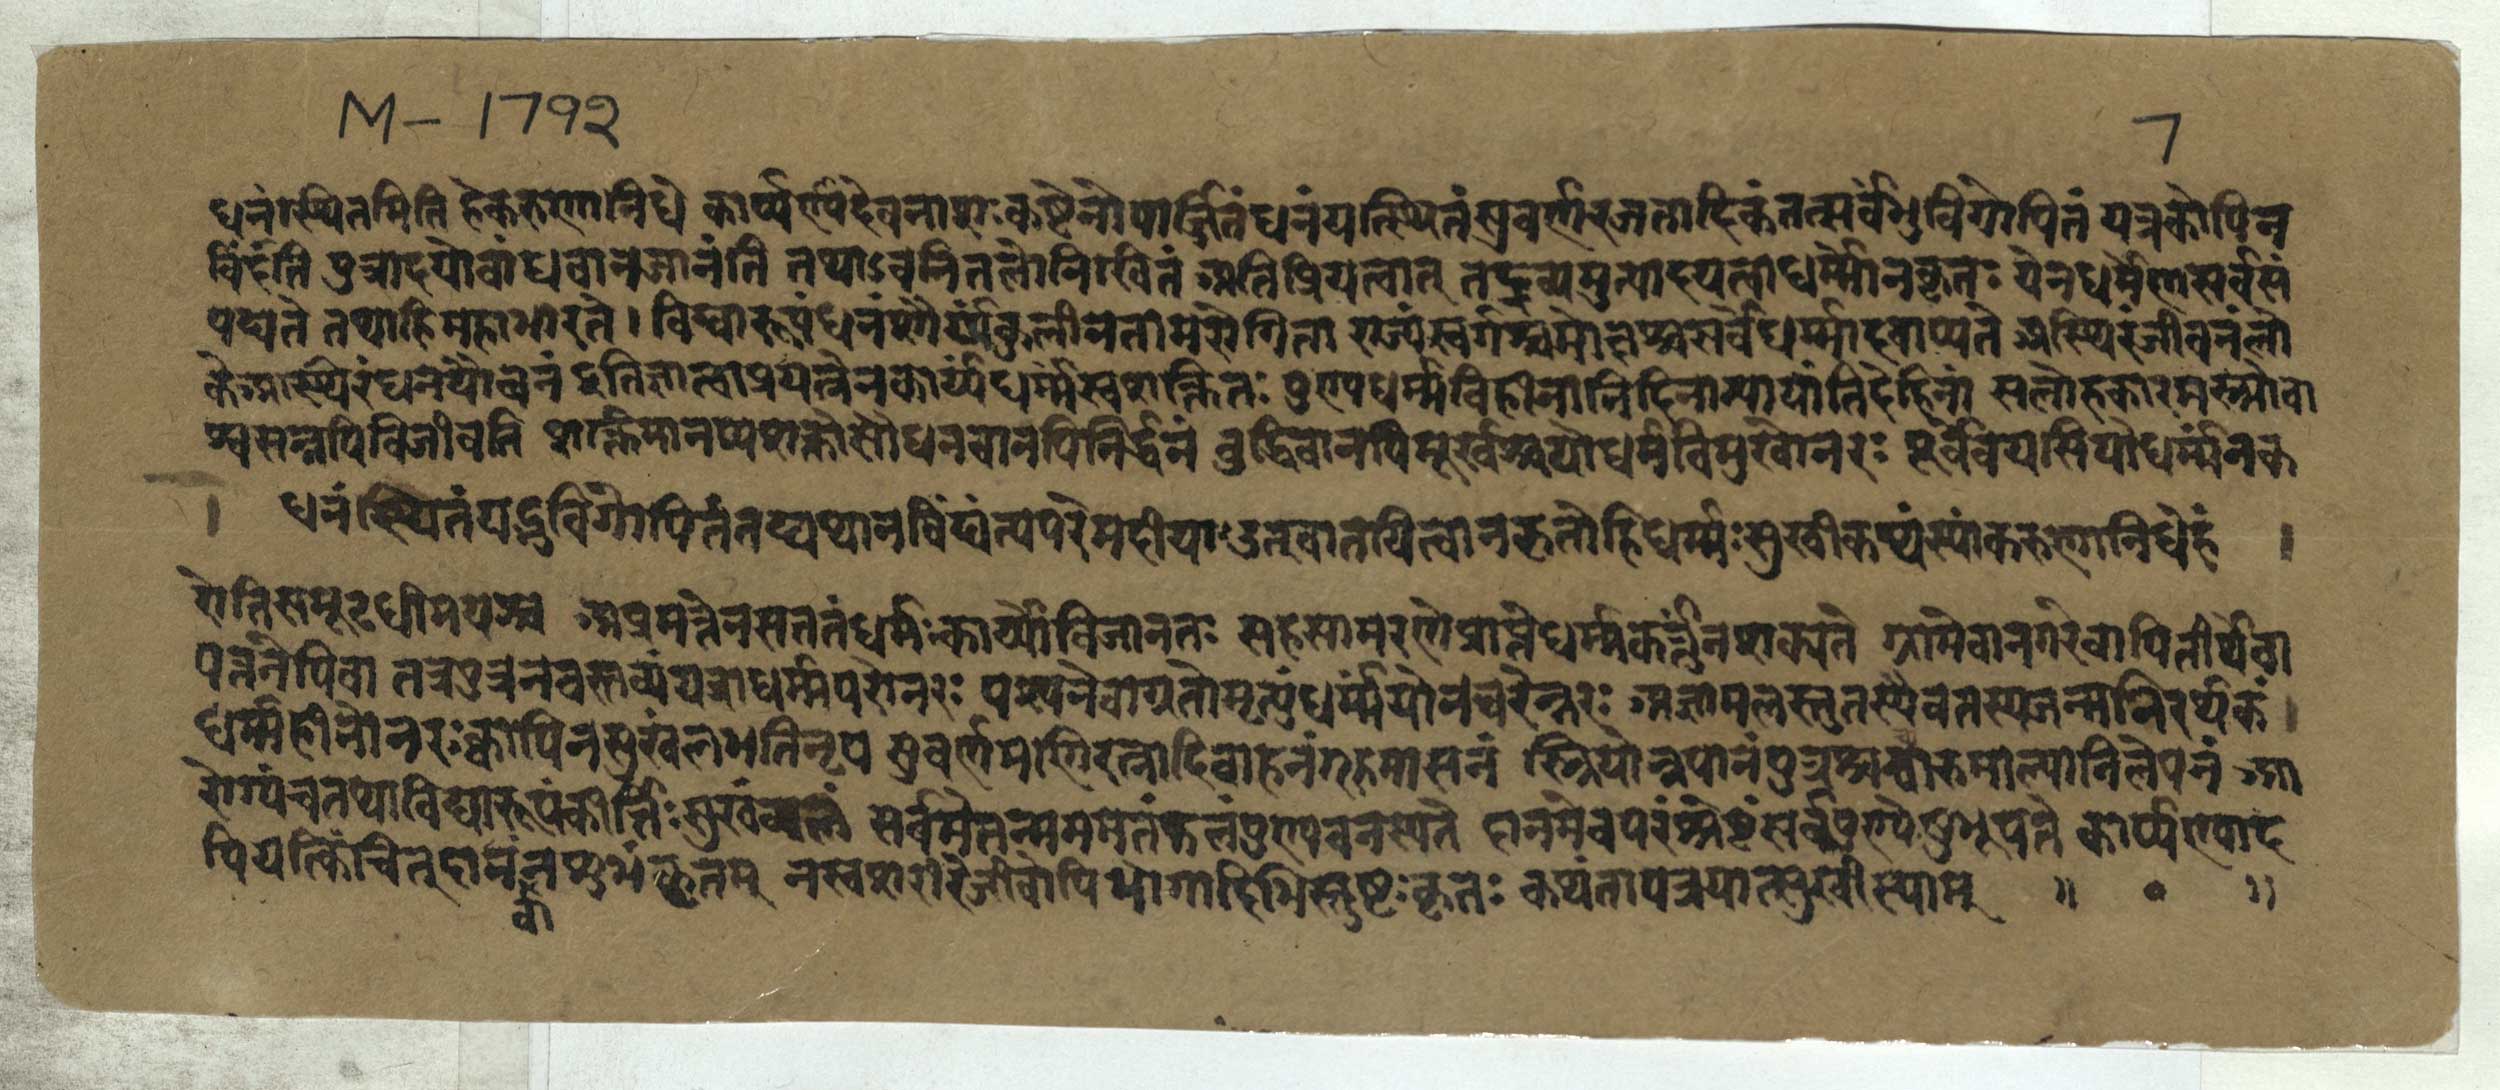 M-1792
7
धनंस्थितमिति हेकरुणानिधे कार्प्पण्यदैवनाशः कष्टेनोपार्जितंधनंयत्स्थितंसुवर्णरजतादिकंतत्सर्वंभुविगोपितं यत्रकोपिन
विंदंति पुत्रादयोबांधवानजानंति तथाऽवनितलेनिखितं अतिप्रियत्वात् तद्द्रव्यमुत्पादयत्वाधर्म्मोनकृतः येनधर्मेणसर्वंसं
पद्यते तथाहिमहाभारते। विद्यारूपंधनंशौर्य्यंकुलीनतामरोगिता राज्यंस्वर्गश्चमोक्षश्चसर्वंधर्म्मादवाप्यते अस्थिरंजीवनंलो
केअस्थिरंधनंयौवनं इतिज्ञात्वाप्रयत्नेनकार्य्यंधर्म्मस्वशक्तितः पुण्यधर्म्मविहीनानिदिनान्यायांतिदेहिनां सलोहकारभस्त्रेवा
श्वसन्नपिविजीवति शक्तिमानप्यशक्तोसौधनवानपिनिर्द्धनं बुद्धिवानपिमूर्खश्चयोधर्मविमुखोनरः पूर्वेवयसियोधर्म्मंनक
धनंस्थितंयद्भुविगोपितंतद्यथानविंद्यंत्यपरेमहीया उत्खातयित्वानकृतोहिधर्म्मः सुखीकथंस्यांकरुणानिधेहं
रोतिसमूढधीमयश्च अप्रमत्तेनसततंधर्मः कार्य्योविजानतः सहसामरणेप्राप्तेधर्म्मकर्त्तुंनशक्यते ग्रामेवानगरेवापितीर्थेवा
पत्तनेपिवा तत्रपुत्रनवस्तव्यंयत्राधर्म्मपरोनरः पश्यन्नेवाग्रतोमृत्युंधर्म्मंयोनचरेन्नरः अजामलस्तुतस्यैवतस्यजन्मनिरर्थकं
धर्म्महीनोनरः कोपिनसुखंलभतिनृप सुवर्णमणिरत्नादिवाहनंगृहमासनं स्त्रियोन्नपानंपुत्रश्चचारुमाल्यानिलेपनं आ
रोग्यंचतथाविद्यारूपंकीर्त्तिः सुखंबलं सर्वमेतन्मममतंफलंपुण्यवनस्यते दानमेवपरंश्रेष्ठंसर्वपुण्येषुभूपते कार्प्पण्याद
पियत्किंचित्दानंनशुभंकृतम् नस्वशरीरंजीवोपिभोगादिभिस्तुष्टः कृतः कथंतापत्रयात्सुखीस्याम् ॥ ० ॥
वा